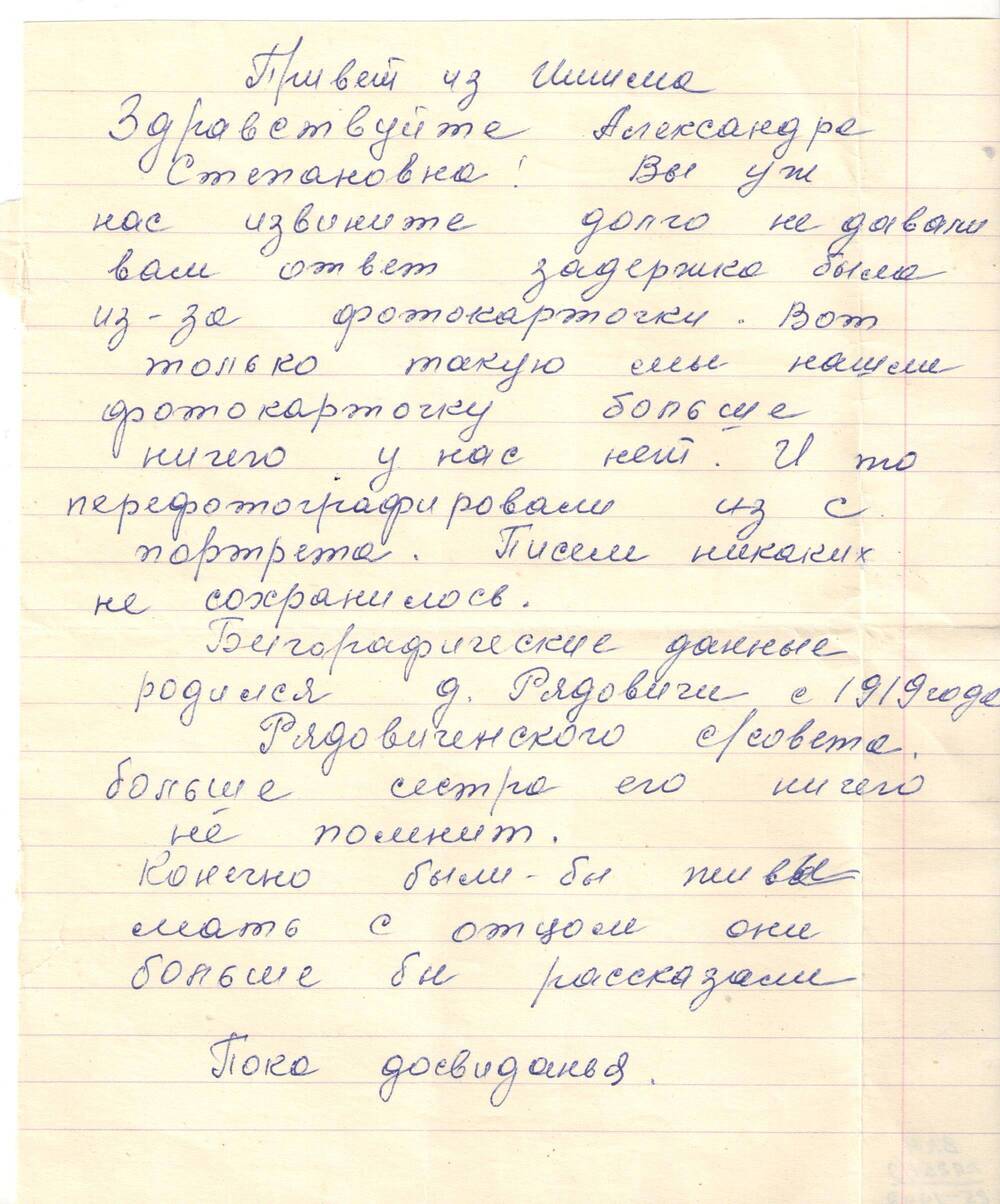 Привет из Ишима
Здравствуйте Александра
Степановна! Вы уж
нас извините долго не давали
вам ответ задержка была
из-за фотокарточки. Вот
только такую мы нашли
фотокарточку больше
ничего у нас нет. И то
перефотографировали из с
портрета. Писем никаких
не сохранилось.
Биографические данные
родился д. Рядовичи с 1919 года
Рядовиченского с/совета.
больше сестра его ничего
не помнит.
Конечно были-бы живы
мать с отцом они
больше бы рассказали
Пока досвиданья.